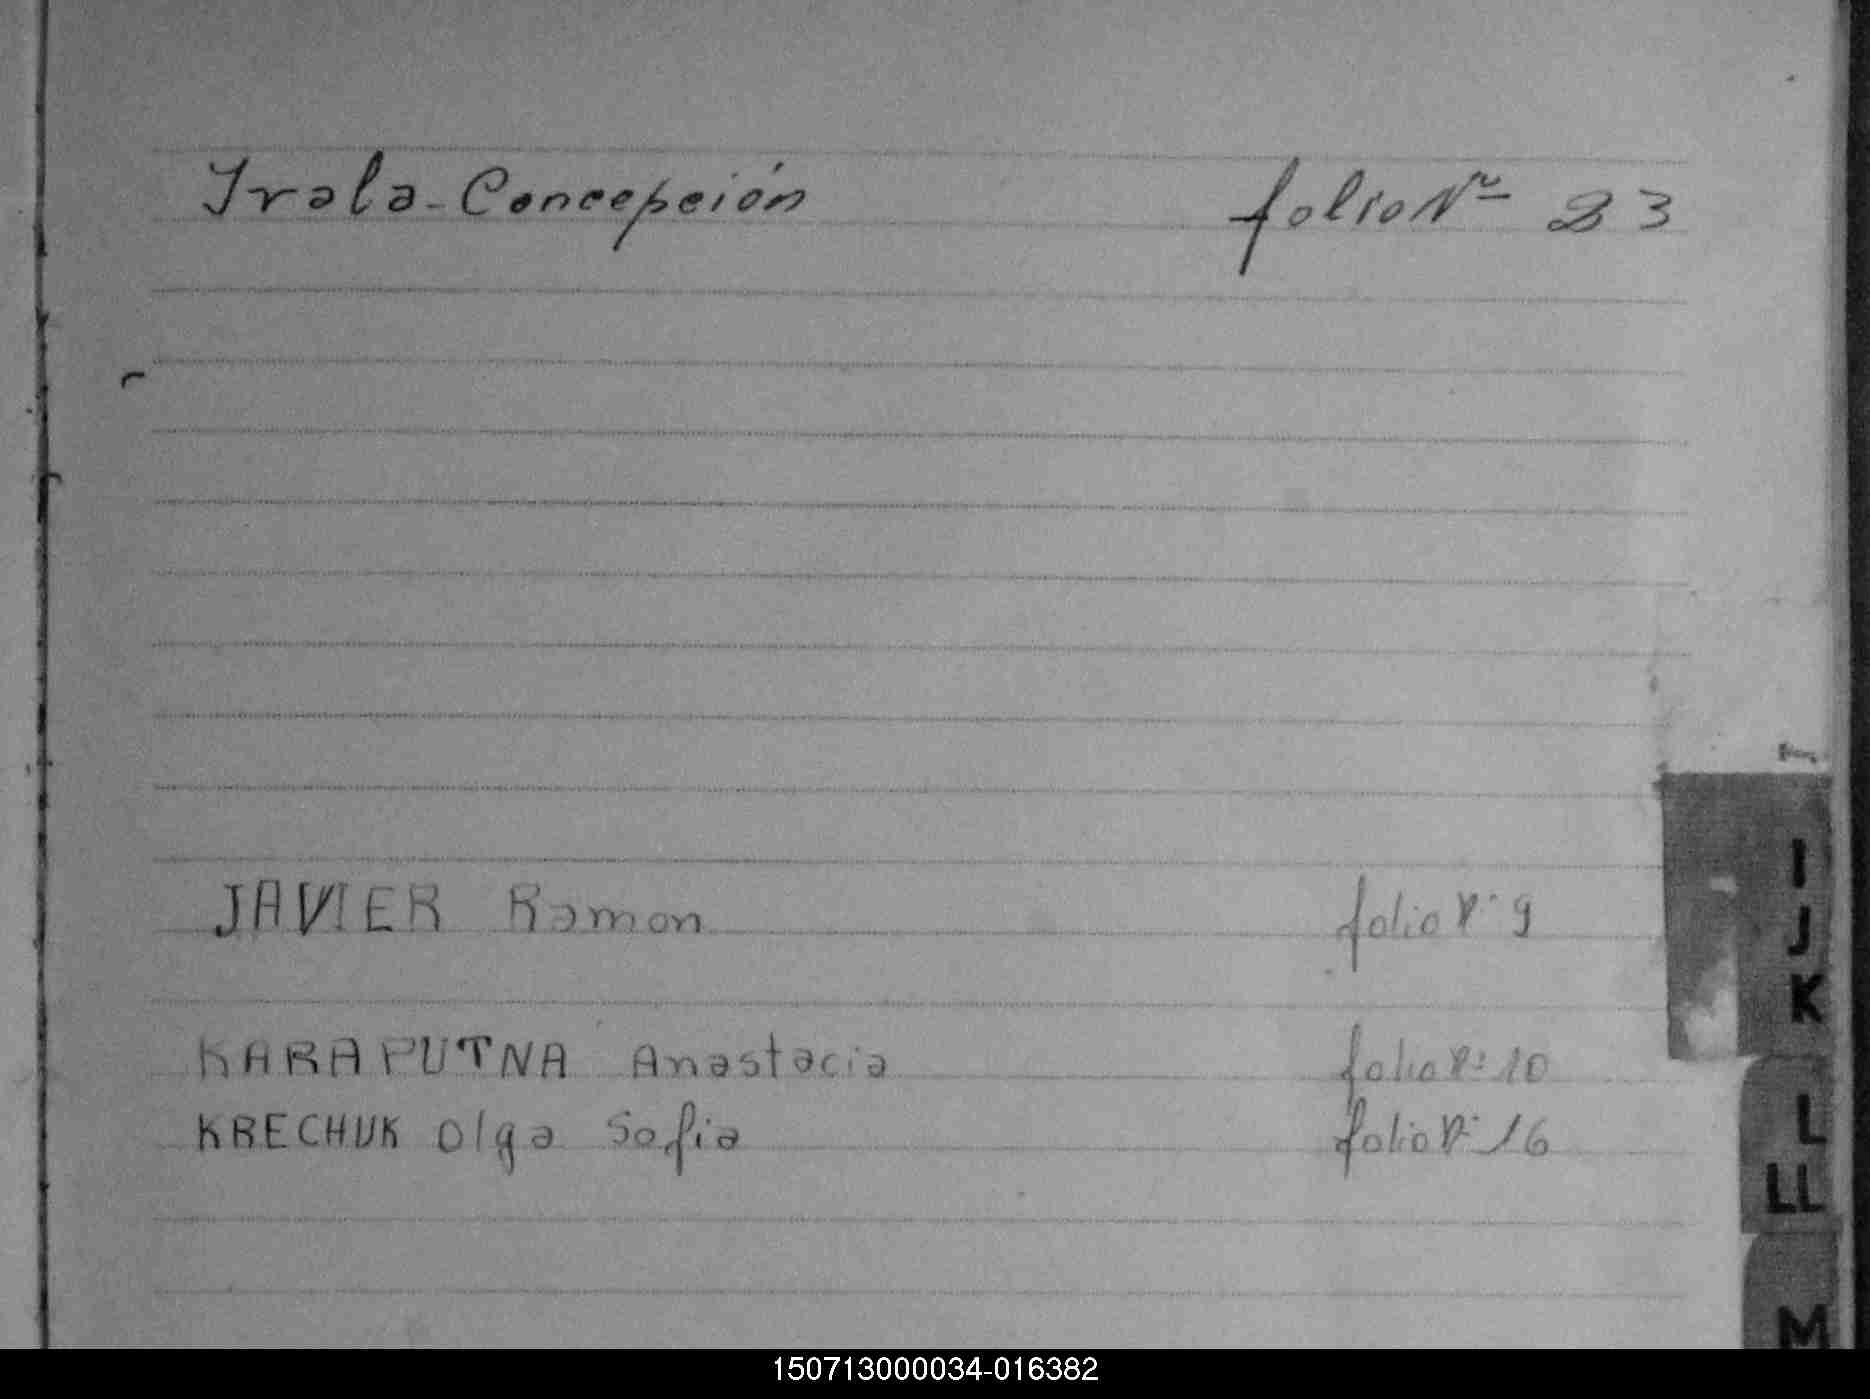 Irala-Concepción folio Nº 23
JAVIER Ramon folio Nº 9
I
J
K
KARAPUTNA Anastacia folio Nº 10
KRECHUK Olga Sofia folio Nº 16
L
LL
M
150713000034-016382